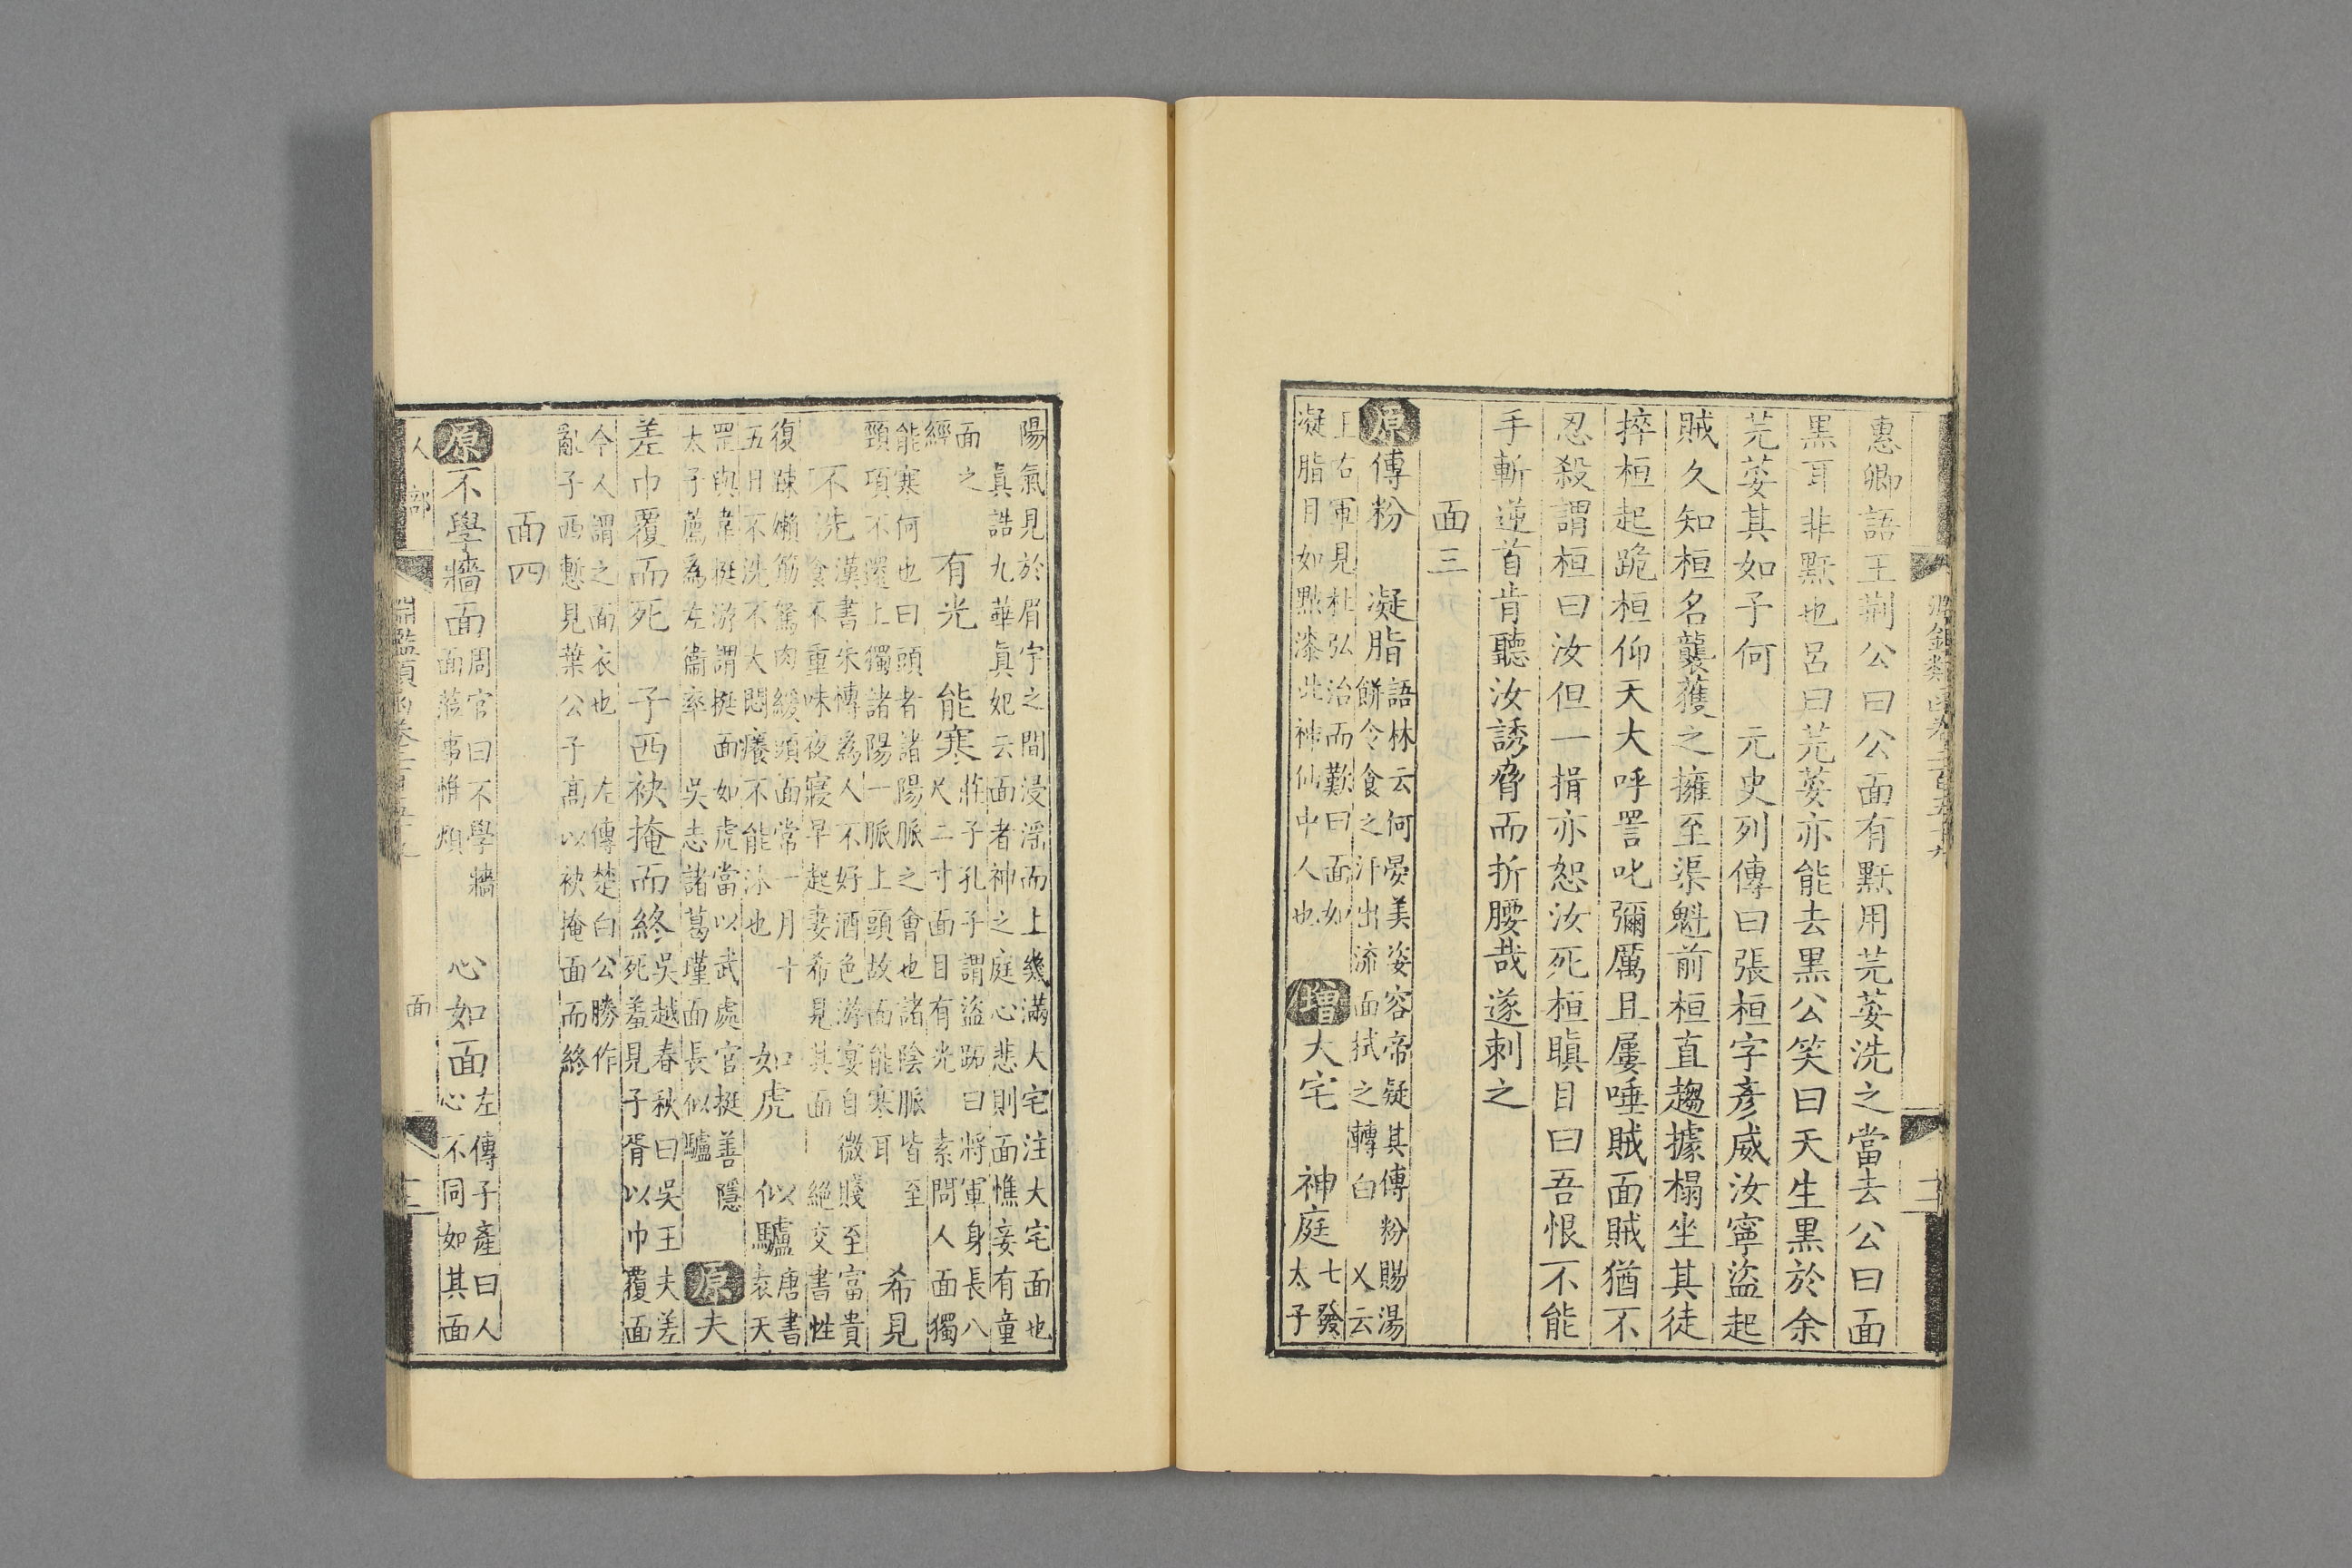 惠卿語王荆公曰公面有䵟用芫荽洗之當去公曰面
黑耳非䵟也呂曰芫荽亦能去黑公笑曰天生黑於余
芫荽其如子何　元史列傳曰張桓字彥威汝寧盜起
賊久知桓名襲獲之擁至渠魁前桓直趨據榻坐其徒
捽桓起跪桓仰天大呼詈叱彌厲且屢唾賊面賊猶不
忍殺謂桓曰汝但一揖亦恕汝死桓瞋目曰吾恨不能
手斬逆首肯聽汝誘脅而折腰哉遂刺之
面三
原傅粉　凝脂
語林云何晏美姿容帝疑其傅粉賜湯
餅令食之汗出流面拭之轉白　又云
王右軍見杜弘治而歎曰面如
凝脂目如點漆此神仙中人也
增大宅　神庭
七發
太子
陽氣見於眉宇之間浸淫而上幾滿大宅注大宅面也
真誥九華真妃云面者神之庭心悲則面憔妾有童
面之
經
有光　能寒
莊子孔子謂盜跖曰將軍身長八
尺二寸面目有光　素問人面獨
能寒何也曰頭者諸陽脈之會也諸陰脈皆至
頸項不還上獨諸陽脈上頭故面能寒耳
希見
不洗
漢書朱博為人不好酒色游宴自微賤至富貴
食不重味夜寢早起妻希見其面　絕交書性
復疎嬾筋駑肉緩頭面常一月十
五日不洗不大悶癢不能沐也
如虎　似驢
唐書
袁天
罡與韋挺游謂挺面如虎當以武處官挺善隱
太子薦為左衞率　吳志諸葛瑾面長似驢
原夫
差巾覆而死　子西袂掩而終
吳越春秋曰吳王夫差
死羞見子胥以巾覆面
今人謂之面衣也　左傳楚白公勝作
亂子西慙見葉公子高以袂掩面而終
面四
原不學牆面
周官曰不學牆
面蒞事惟煩
心如面
左傳子產曰人
心不同如其面
人部
淵鑑類函卷二百五十九
面